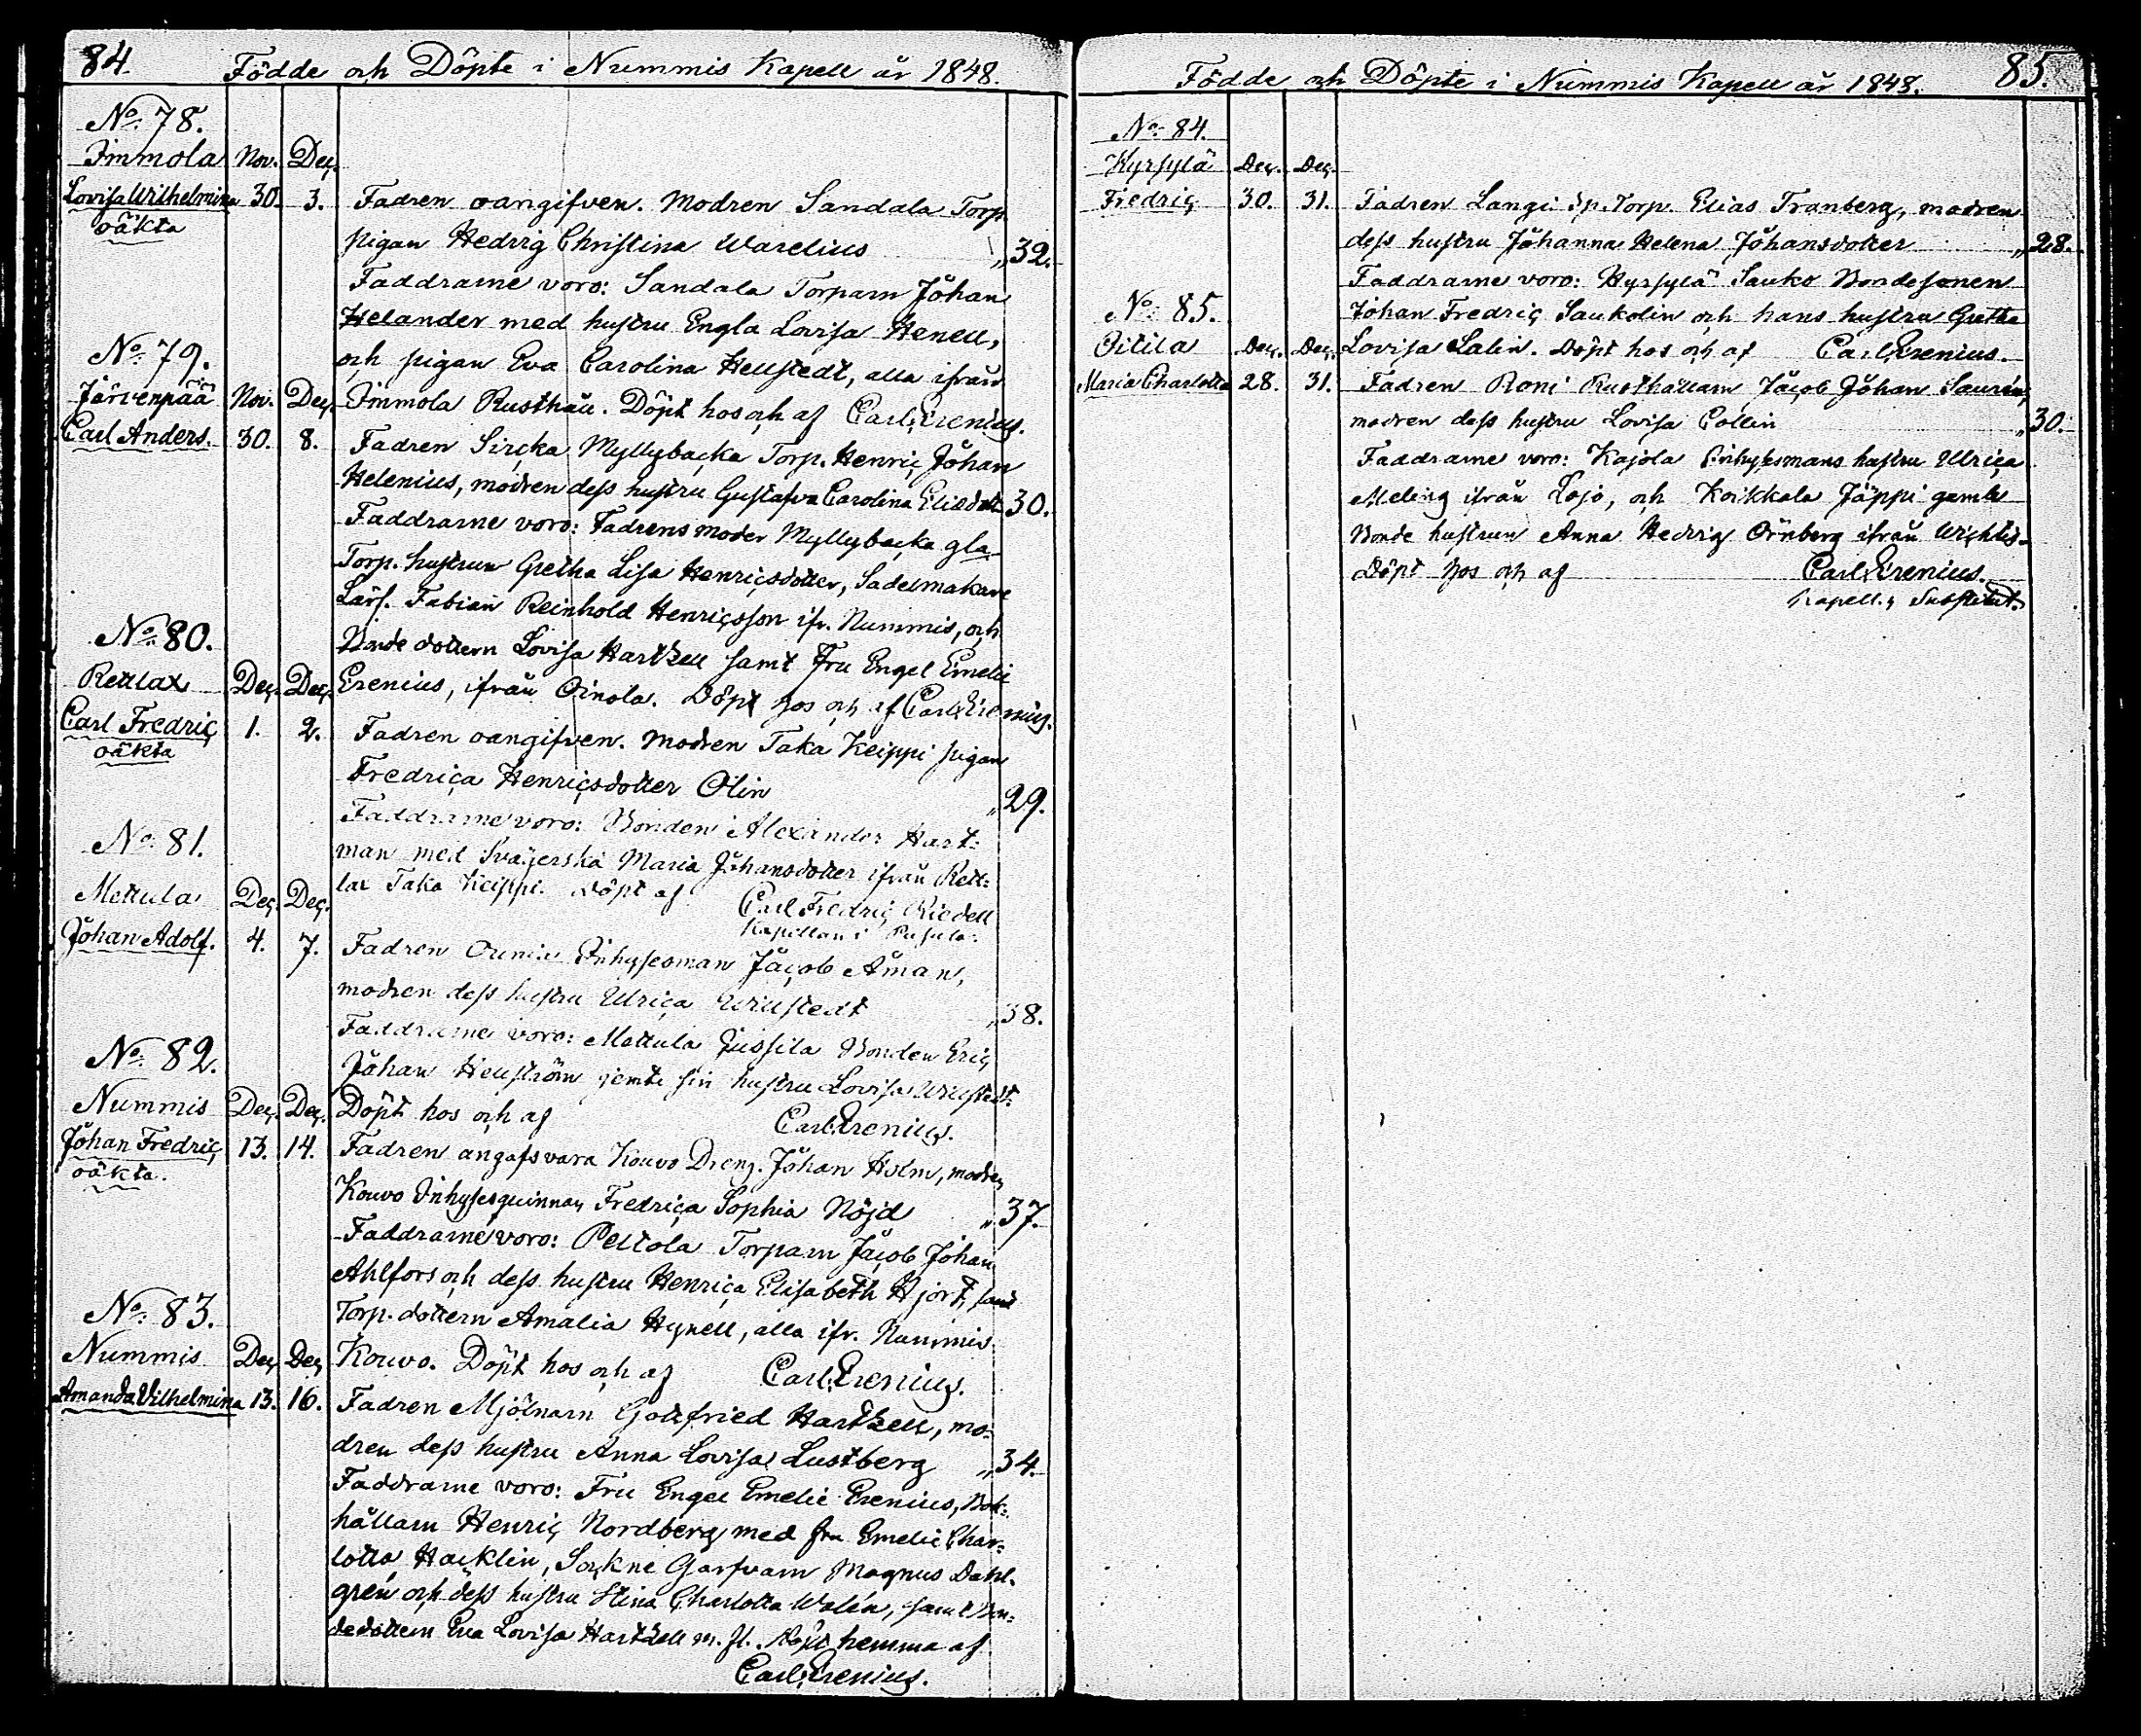 84. Födde och Döpte i Nummis Kapell år 1848.
No. 78.
Immola Nov. Dec.
Lovisa Wilhelmina 30. 3. Fadren oangifven. Modren Sandala Torp.
oäkta
pigan Hedvig Christina Warelius „ 32.
Faddrarne voro: Sandala Torparn Johan
Helander med hustru Engla Lovisa Henell,
och pigan Eva Carolina Hellstedt, alla ifrån
No. 79.
Järvenpää Nov. Dec. Immola Rusthåll. Döpt hos och af Carl Erenius.
Carl Anders. 30. 8. Fadren Sircka Myllybacka Torp. Henric Johan
Helenius, modren dess hustru Gustafva Carolina Eliædott. 30.
Faddrarne voro: Fadrens moder Myllybacka gla
Torp. hustrun Gretha Lisa Henricsdotter, Sadelmakare
Lärl. Fabian Reinhold Henricsson ifr. Nummis, och
Bonde dottern Lovisa Hartzell samt Fru Engel Emelie
No. 80.
Rettlax Dec. Dec. Erenius, ifrån Oinola. Döpt hos och af Carl Erenius.
Carl Fredric 1. 2. Fadren oangifven. Modren Taka Keippi pigan
oäkta
Fredrica Henricsdotter Olin „ 29.
Faddrarne voro: Bonden Alexander Hart-
man med Svägerska Maria Johansdotter ifrån Rett-
lax Taka Keippi. Döpt af Carl Fredric Riedell
Kapellan i Pusula.
No. 81.
Mettula Dec. Dec.
Johan Adolf. 4. 7. Fadren Inhysesman Jacob Åman,
modren dess hustru Ulrica Willstedt „ 38.
Faddrarne voro: Mettula Jussila Bonden Eric
Johan Hellström jemte sin hustru Lovisa Willstedt.
No. 82.
Nummis Dec. Dec. Döpt hos och af Carl Erenius.
Johan Fredric 13. 14. Fadren angafs vara Kouvo Dreng. Johan Holm, modren
oäkta.
Kouvo Inhysesquinnan Fredrica Sophia Nöjd „ 37.
Faddrarne voro: Peltola Torparn Jacob Johan
Ahlfors och dess hustru Henrica Elisabeth Hjort, samt
Torp. dottern Amalia Hynell, alla ifr. Nummis
No. 83.
Nummis Dec. Dec. Kouvo. Döpt hos och af Carl Erenius.
Amanda Vilhelmina 13. 16. Fadren Mjölnarn Gottfried Hartzell, mo-
dren dess hustru Anna Lovisa Lustberg „ 34.
Faddrarne voro: Fru Engel Emelie Erenius, Bok-
hållarn Henric Nordberg med fru Emelie Char-
lotta Hacklin, Sockne Garfvarn Magnus Dahl-
grén och dess hustru Stina Charlotta Walén, samt Bon-
dedottern Eva Lovisa Hartzell m. fl. Döpt hemma af
Carl Erenius.
Födde och Döpte i Nummis Kapell år 1848. 85.
No. 84.
Hyrsylä Dec. Dec.
Fredric 30. 31. Fadren Langi Sp. Torp. Elias Tranberg, modren
dess hustru Johanna Helena Johansdotter „ 28.
Faddrarne voro: Hyrsylä Sauko Bondesonen
Johan Fredric Saukolin och hans hustru Gretha
No. 85.
Oitila Dec. Dec. Lovisa Salin. Döpt hos och af Carl Erenius.
Maria Charlotta 28. 31. Fadren Roni Rusthållarn Jacob Johan Saurén,
modren dess hustru Lovisa Collin „ 30.
Faddrarne voro: Kajola Inhysesmans hustru Ulrica
Meling ifrån Lojo, och Koikkala Jäppi gamle
Bonde hustrun Anna Hedvig Örnberg ifrån Wichtis.
Döpt hos och af Carl Erenius.
Kapell.s Substitut.